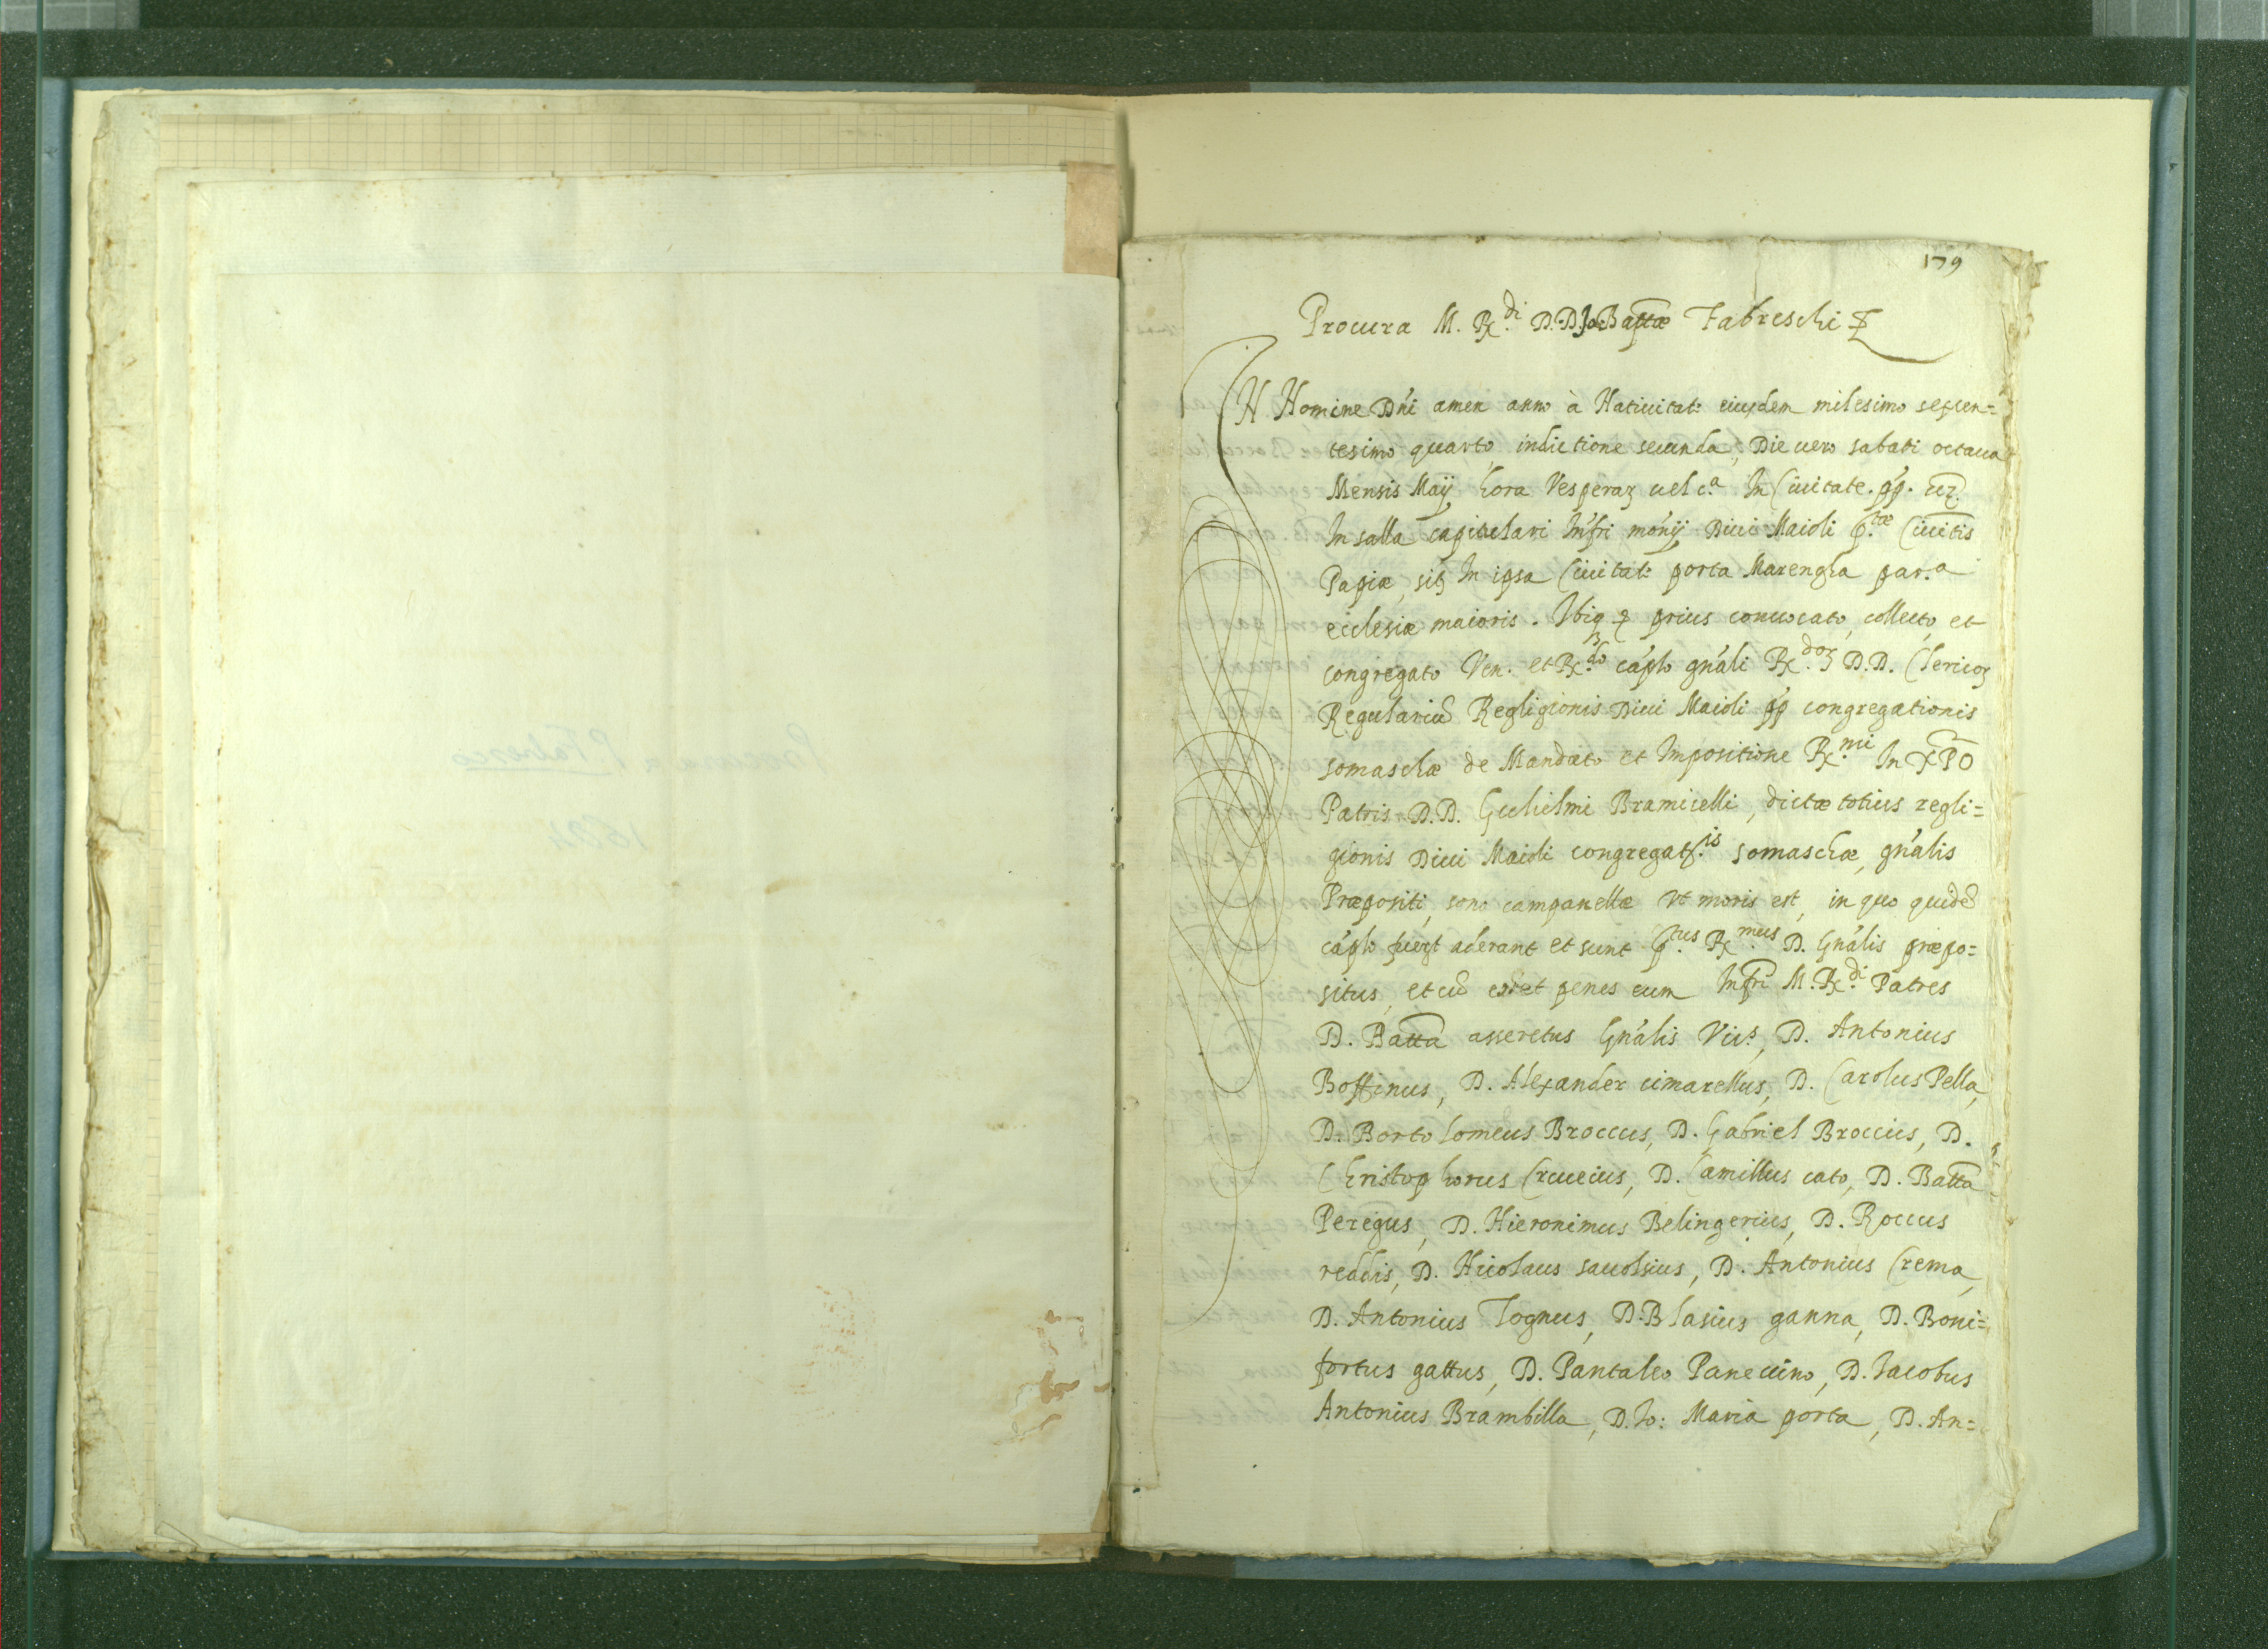 179
Procura M. R.di D.D. Jo: Battæ Fabreschi
IN Nomine Dñi amen anno à Natiuitat: eiusdem milesimo sexcen=
tesimo quarto, indictione secunda, Die uero sabati octaua
Mensis Maij hora Vesperaꝝ uel c.a In Ciuitate. pp.
In salla capitulari Infri mon̄ij Diui Maioli p.tæ Ciuitis
Papiæ, sit In ipsa Ciuitat: porta Marengha par.a
ecclesiæ maioris. Ibiq prius conuocato, collecto, et
congregato Ven. et R.do cap̄lo gn̄ali R.doꝝ D.D. Clericoꝝ
Regulariū Regligionis Diui Maioli pp congregationis
somaschæ de Mandato et Impositione R.mi In XPO
Patris D.D. Gulielmi Bramicelli, dictæ totius regli=
gionis Diui Maioli congregat.is somaschæ, gn̄alis
Præpositi, sono campanellæ vt moris est, in quo quidē
cap̄lo fuert aderant et sunt p.tus R.mus D. Gn̄alis præpo=
situs, et cū eo et penes eum Infri M. R.di Patres
D. Batta asseretus Gn̄alis Vics, D. Antonius
Boffinus, D. Alexander cimarellus, D. Carolus Pella,
D. Bartolomeus Broccus, D. Gabriel Broccius, D.
Christophorus Crucius, D. Camillus cato, D. Batta
Peregus, D. Hieronimus Belingerius, D. Roccus
reddis, D. Nicolaus sauolsius, D. Antonius Crema,
D. Antonius Tognus, D. Blasius ganna, D. Boni=
fortus gattus, D. Pantaleo Panecuino, D. Iacobus
Antonius Brambilla, D. Io: Maria porta, D. An=